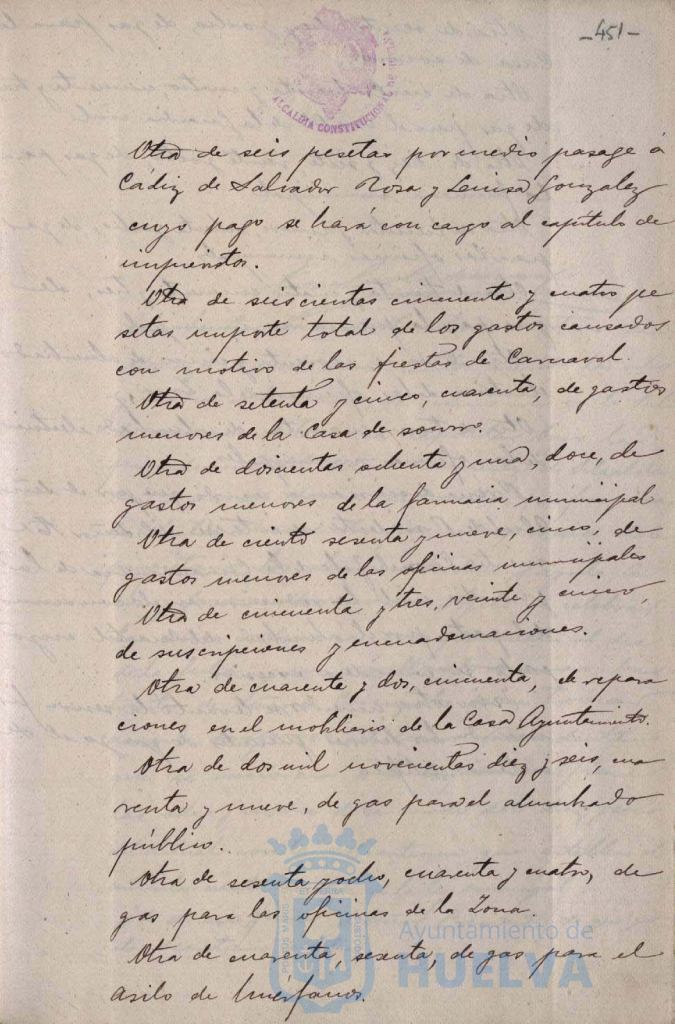 -451-
ALCALDIA CONSTITUCIONAL DE
Otra de seis pesetas por medio pasage á
Cádiz de Salvador Rosa y Luisa Gonzalez
cuyo pago se hará con cargo al capítulo de
imprevistos.
Otra de seiscientas cincuenta y cuatro pe
setas importe total de los gastos causados
con motivo de las fiestas de Carnaval.
Otra de setenta y cinco, cuarenta, de gastos
menores de la Casa de socorro.
Otra de doscientas ochenta y una, doce, de
gastos menores de la farmacia municipal
Otra de ciento sesenta y nueve, cinco, de
gastos menores de las oficinas municipales
Otra de cincuenta y tres, veinte y cinco,
de suscripciones y encuadernaciones.
Otra de cuarenta y dos, cincuenta, de repara
ciones en el mobiliario de la Casa Ayuntamiento.
Otra de dos mil novecientas diez y seis, cua
renta y nueve, de gas para el alumbrado
público.
Otra de sesenta y ocho, cuarenta y cuatro, de
gas para las oficinas de la Zona.
Otra de cuarenta, sesenta, de gas para el
asilo de huerfanos.
Ayuntamiento de
HUELVA